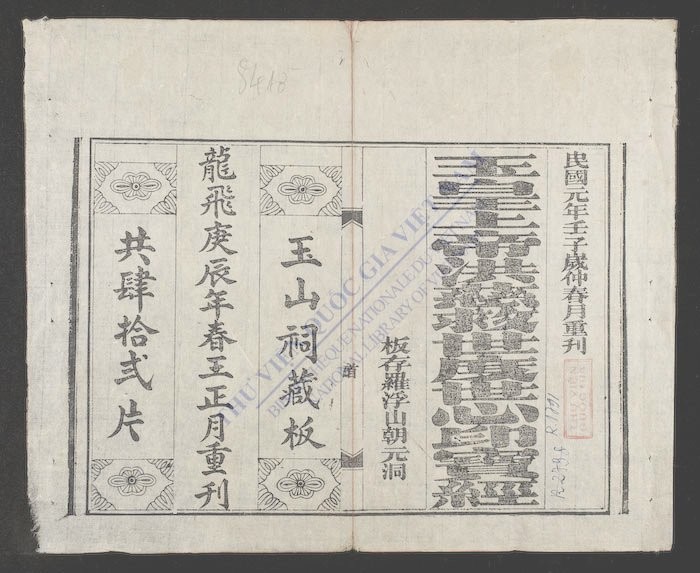 民國元年壬子歲仲春月重刊
玉皇上帝洪慈救世度世心印寶經
板存羅浮山朝元洞
首
玉山祠藏板
龍飛庚辰年春王正月重刊
共肆拾弍片
THƯ VIỆN QUỐC GIA VIỆT NAM
BIBLIOTHEQUE NATIONALE DU VIETNAM
NATIONAL LIBRARY OF VIETNAM